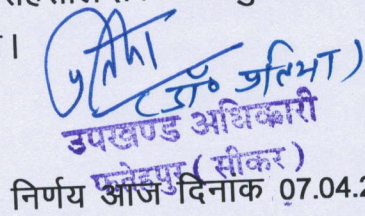 ।
(डॉ० प्रतिभा)
उपखण्ड अधिकारी
फतेहपुर (सीकर)
निर्णय आज दिनांक 07.04.2